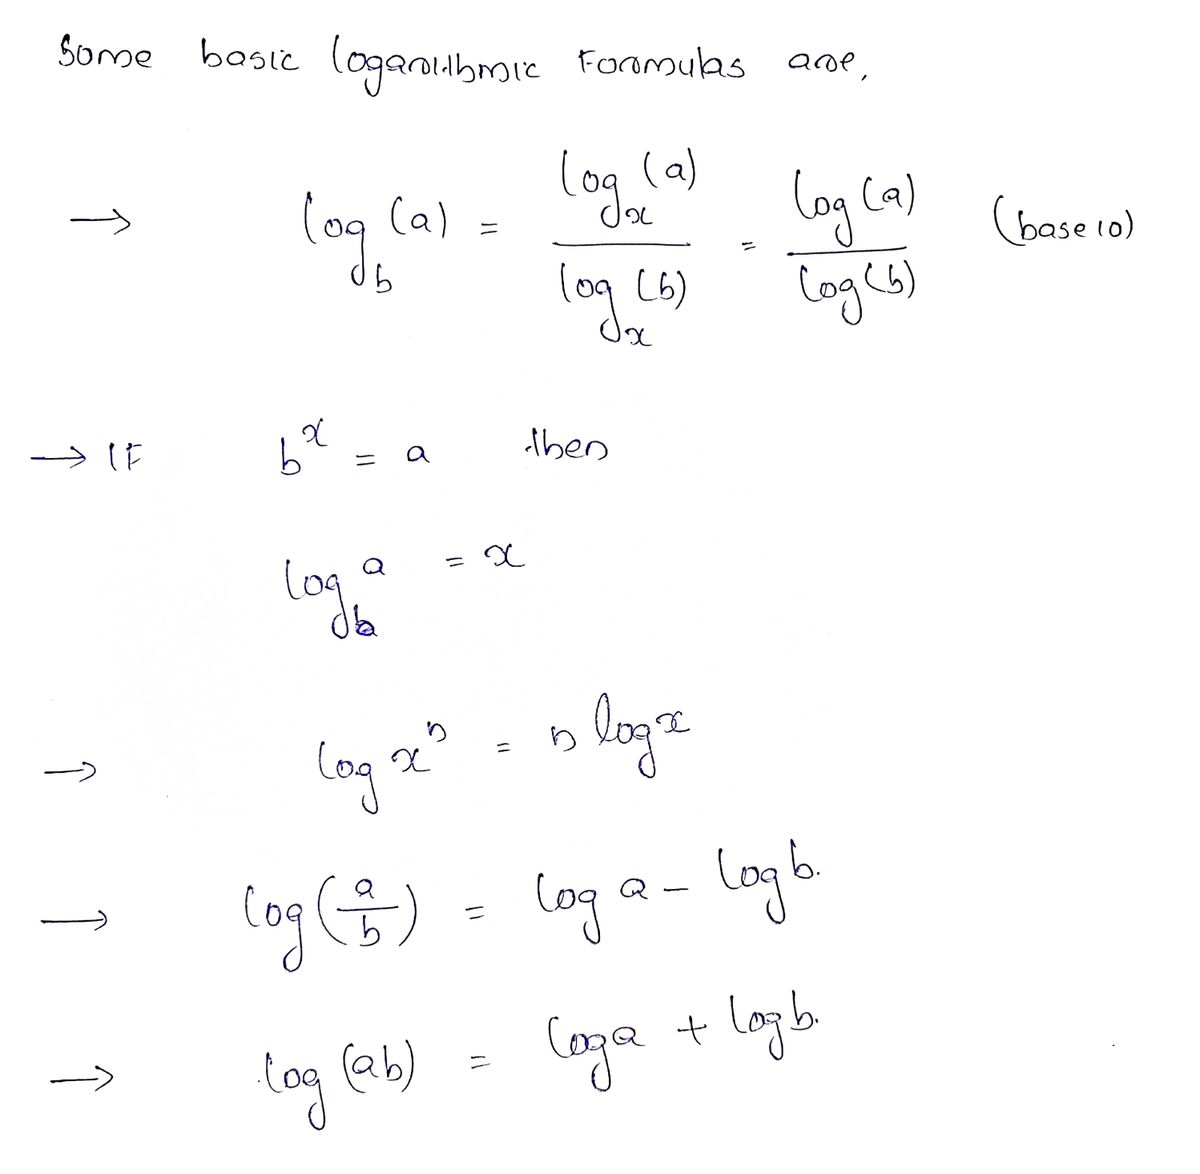 Some basic logarithmic Formulas are,
→ log_b (a) = log_x (a) / log_x (b) = log(a) / log(b) (base 10)
→ IF b^x = a then
log_b a = x
→ log x^n = n log x
→ log(a/b) = log a - log b.
→ log (ab) = log a + log b.